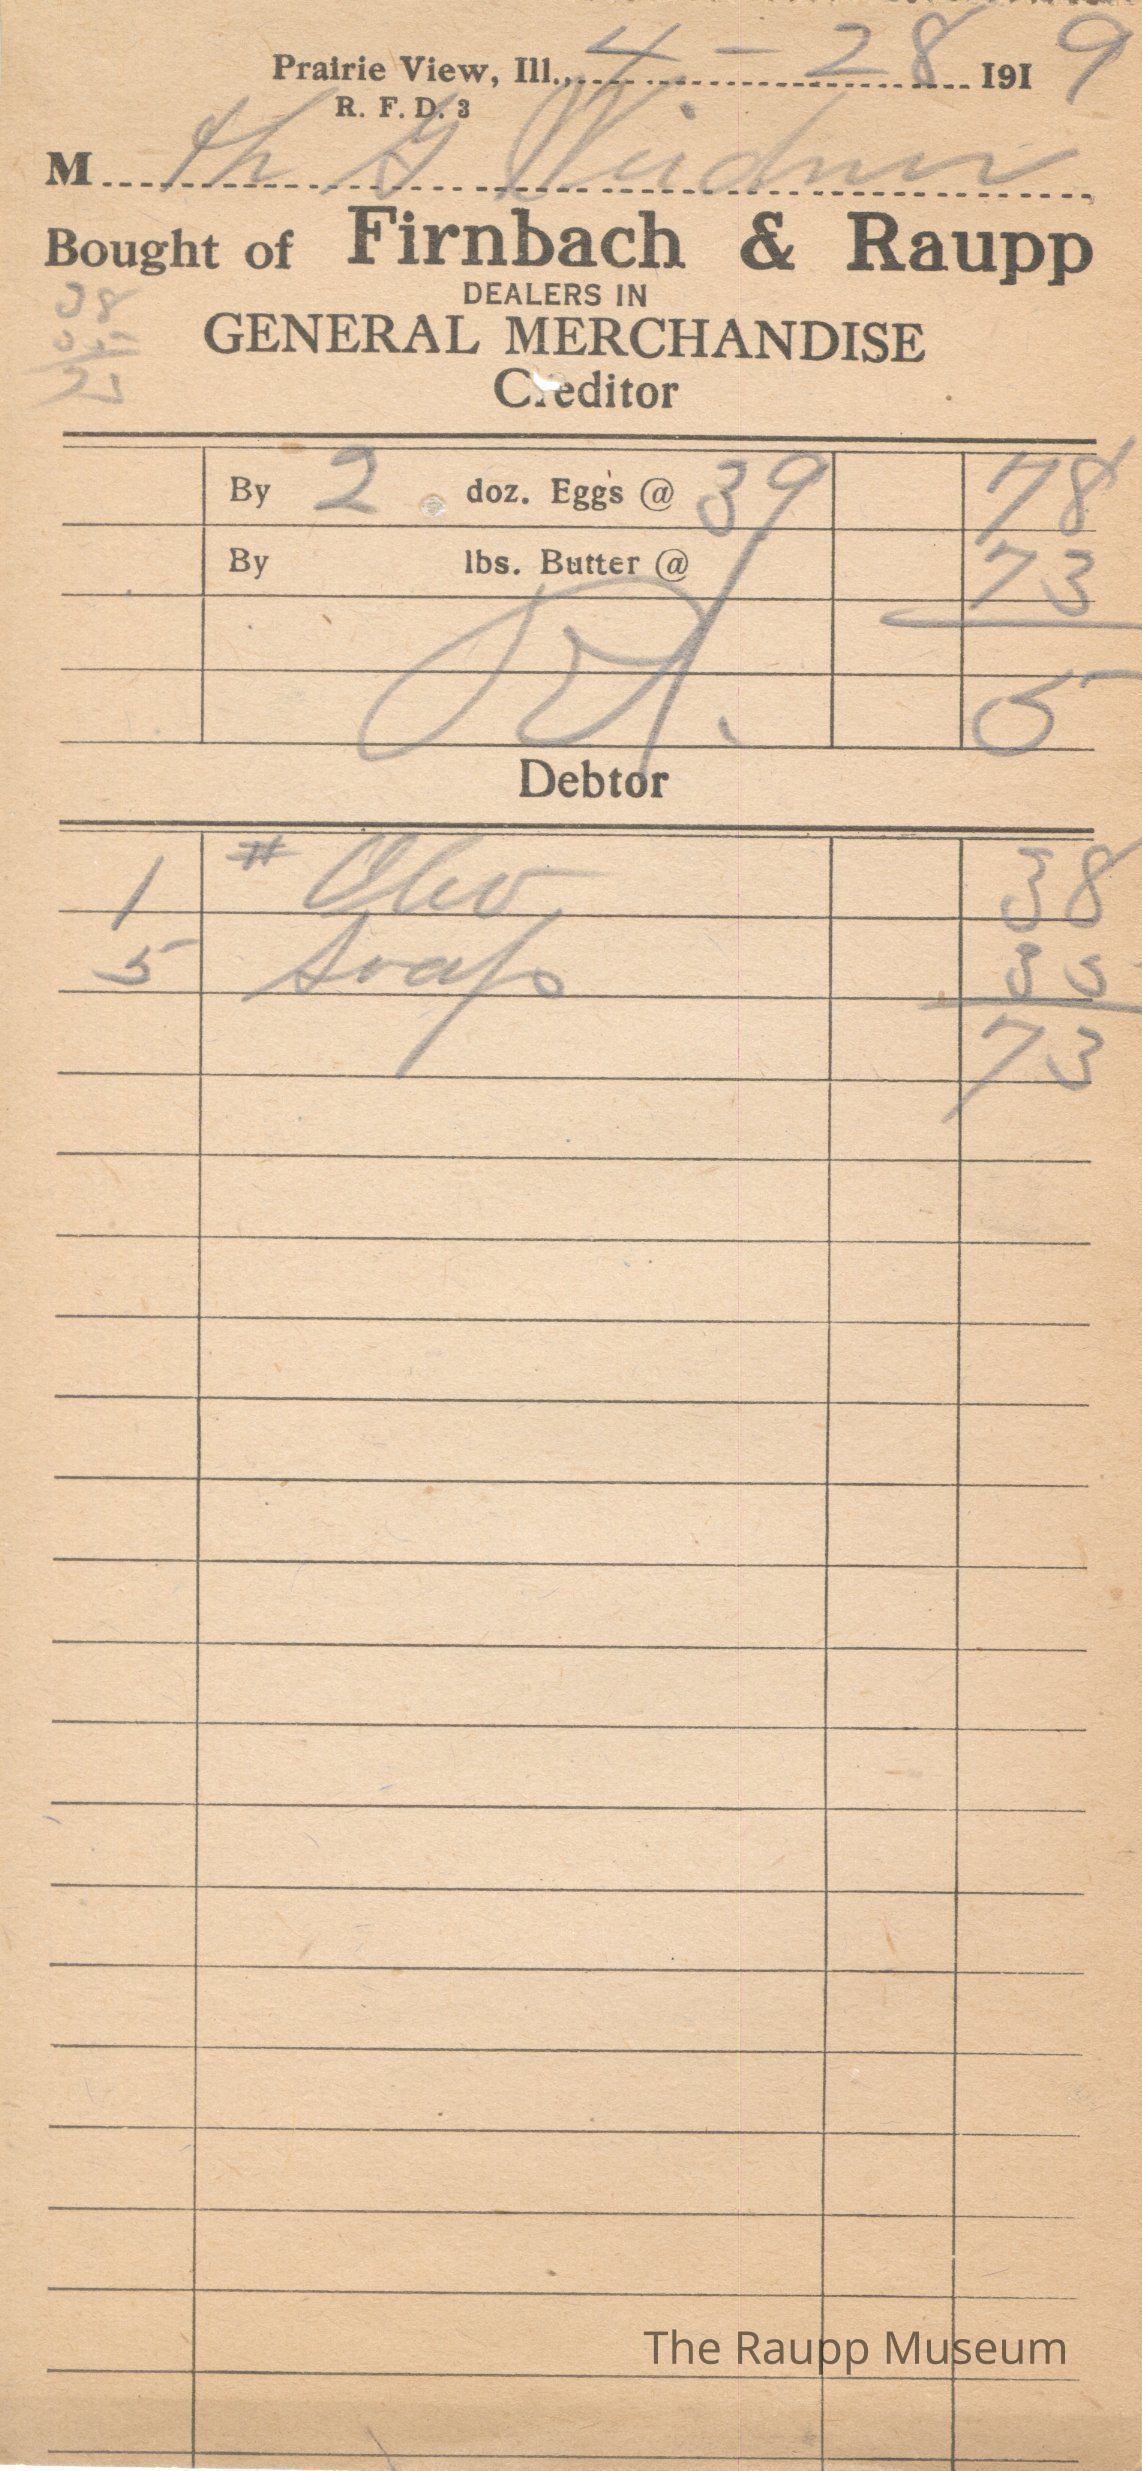 Prairie View, Ill., 4 - 28 1919
R. F. D. 3
M
Bought of Firnbach & Raupp
DEALERS IN
GENERAL MERCHANDISE
38
35
73
Creditor
By 2 doz. Eggs @ 39 78
By lbs. Butter @ 73
5
Debtor
1 # Oleo 38
5 Soap 35
73
The Raupp Museum